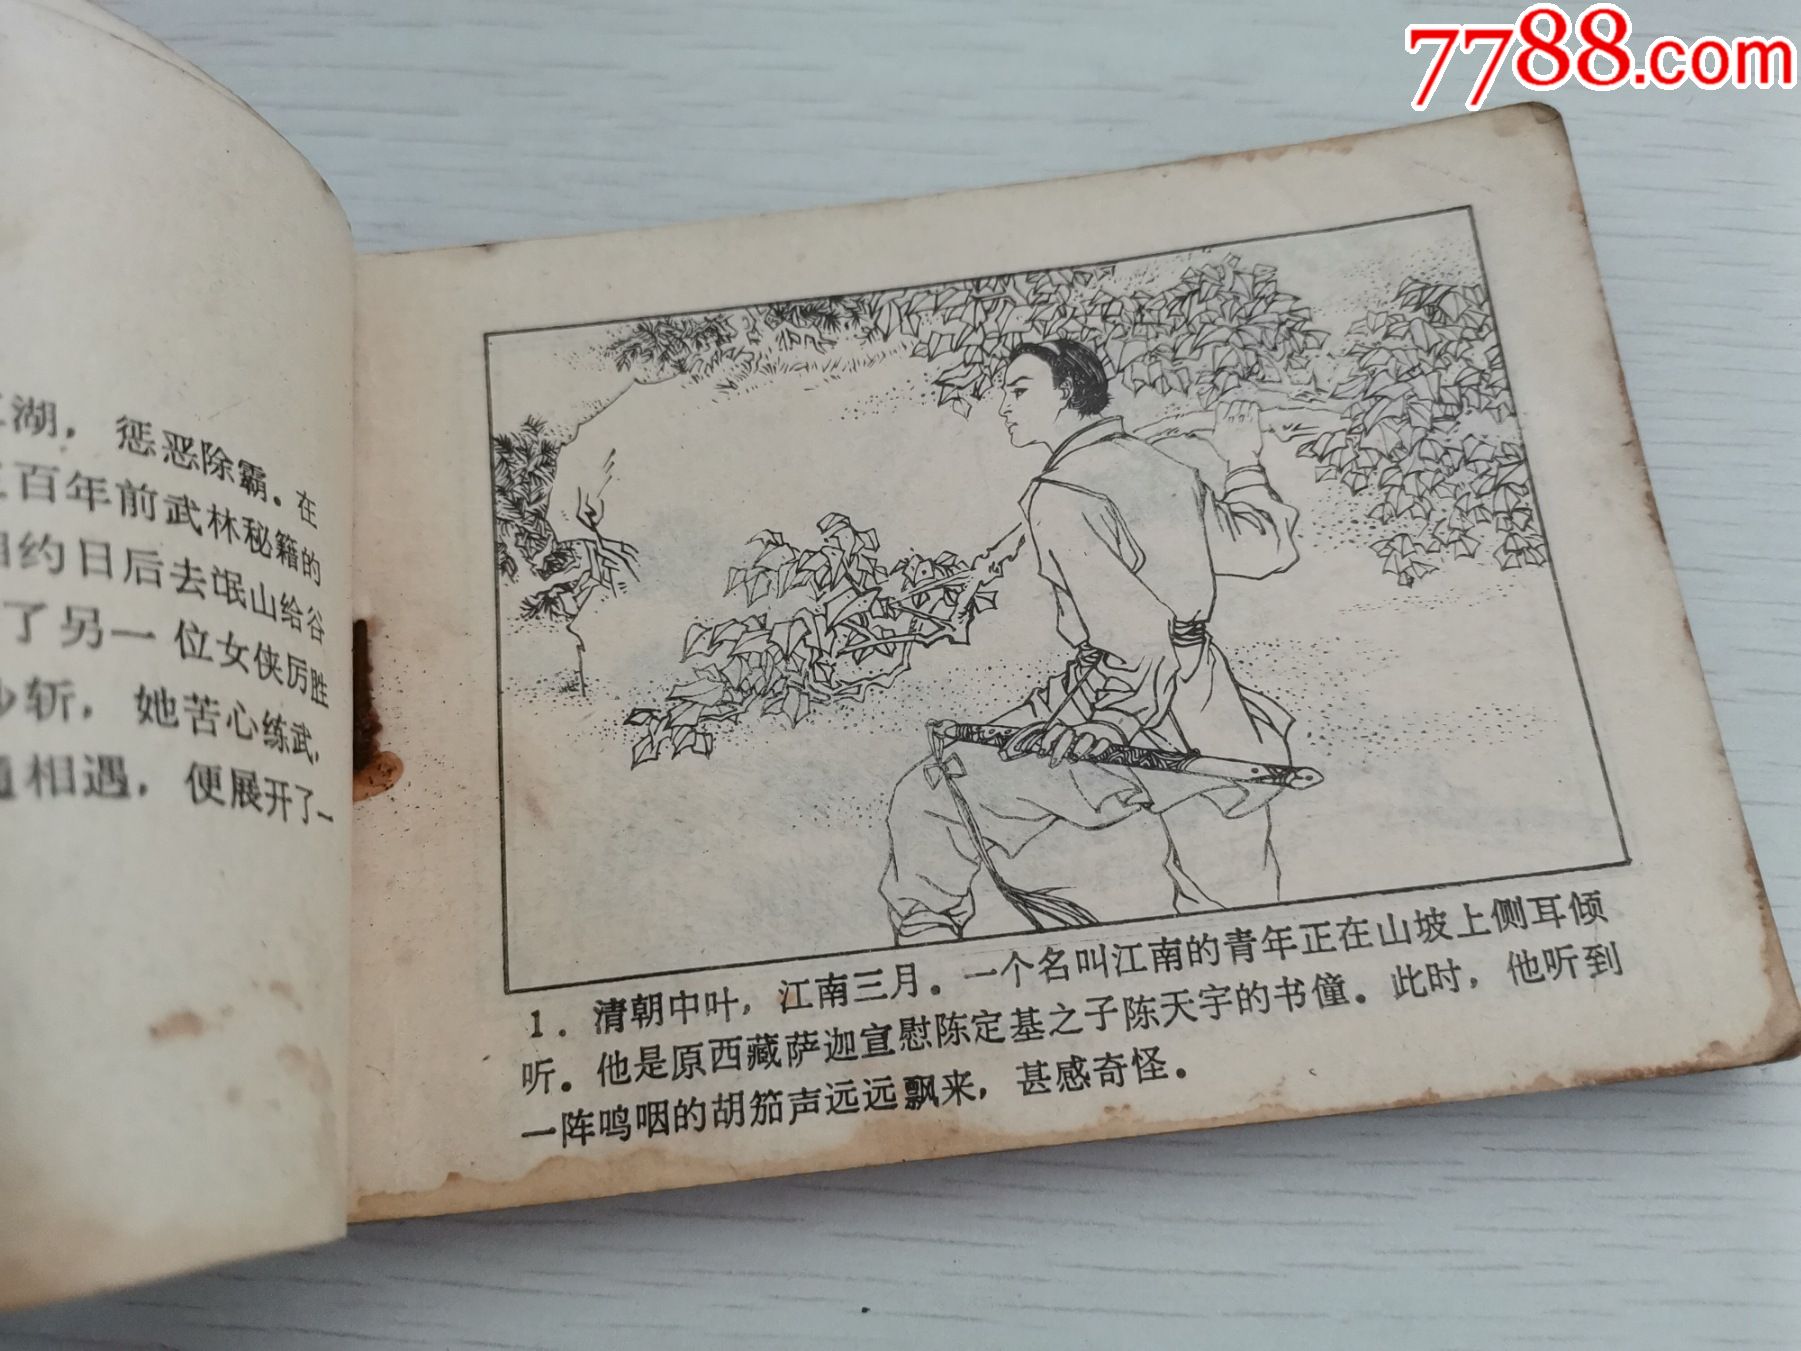 7788.com
湖，惩恶除霸。在
百年前武林秘籍的
相约日后去氓山给谷
了另一位女侠厉胜
斩，她苦心练武，
相遇，便展开了一
1．清朝中叶，江南三月。一个名叫江南的青年正在山坡上侧耳倾
听。他是原西藏萨迦宣慰陈定基之子陈天宇的书僮。此时，他听到
一阵鸣咽的胡笳声远远飘来，甚感奇怪。